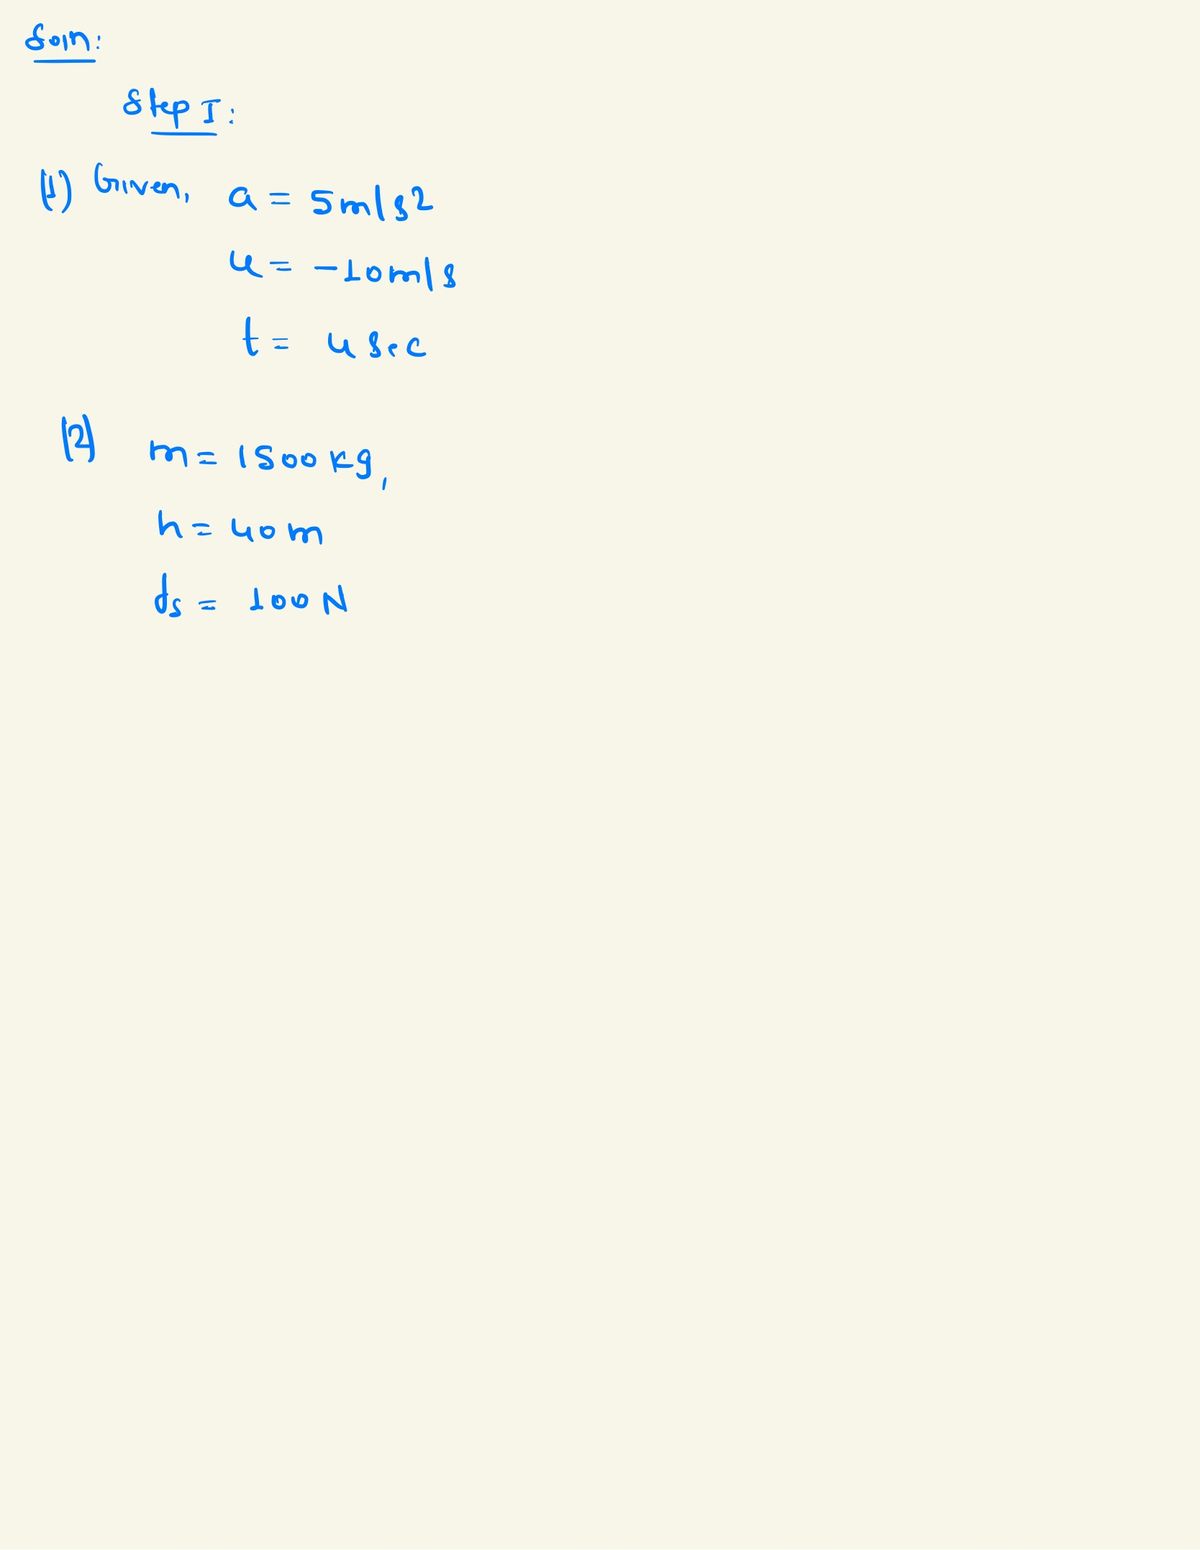 Soln:
Step I:
(1) Given, a = 5m/s2
u = -10m/s
t = 4 sec
(2) m = 1500 kg,
h = 40 m
ds = 100 N